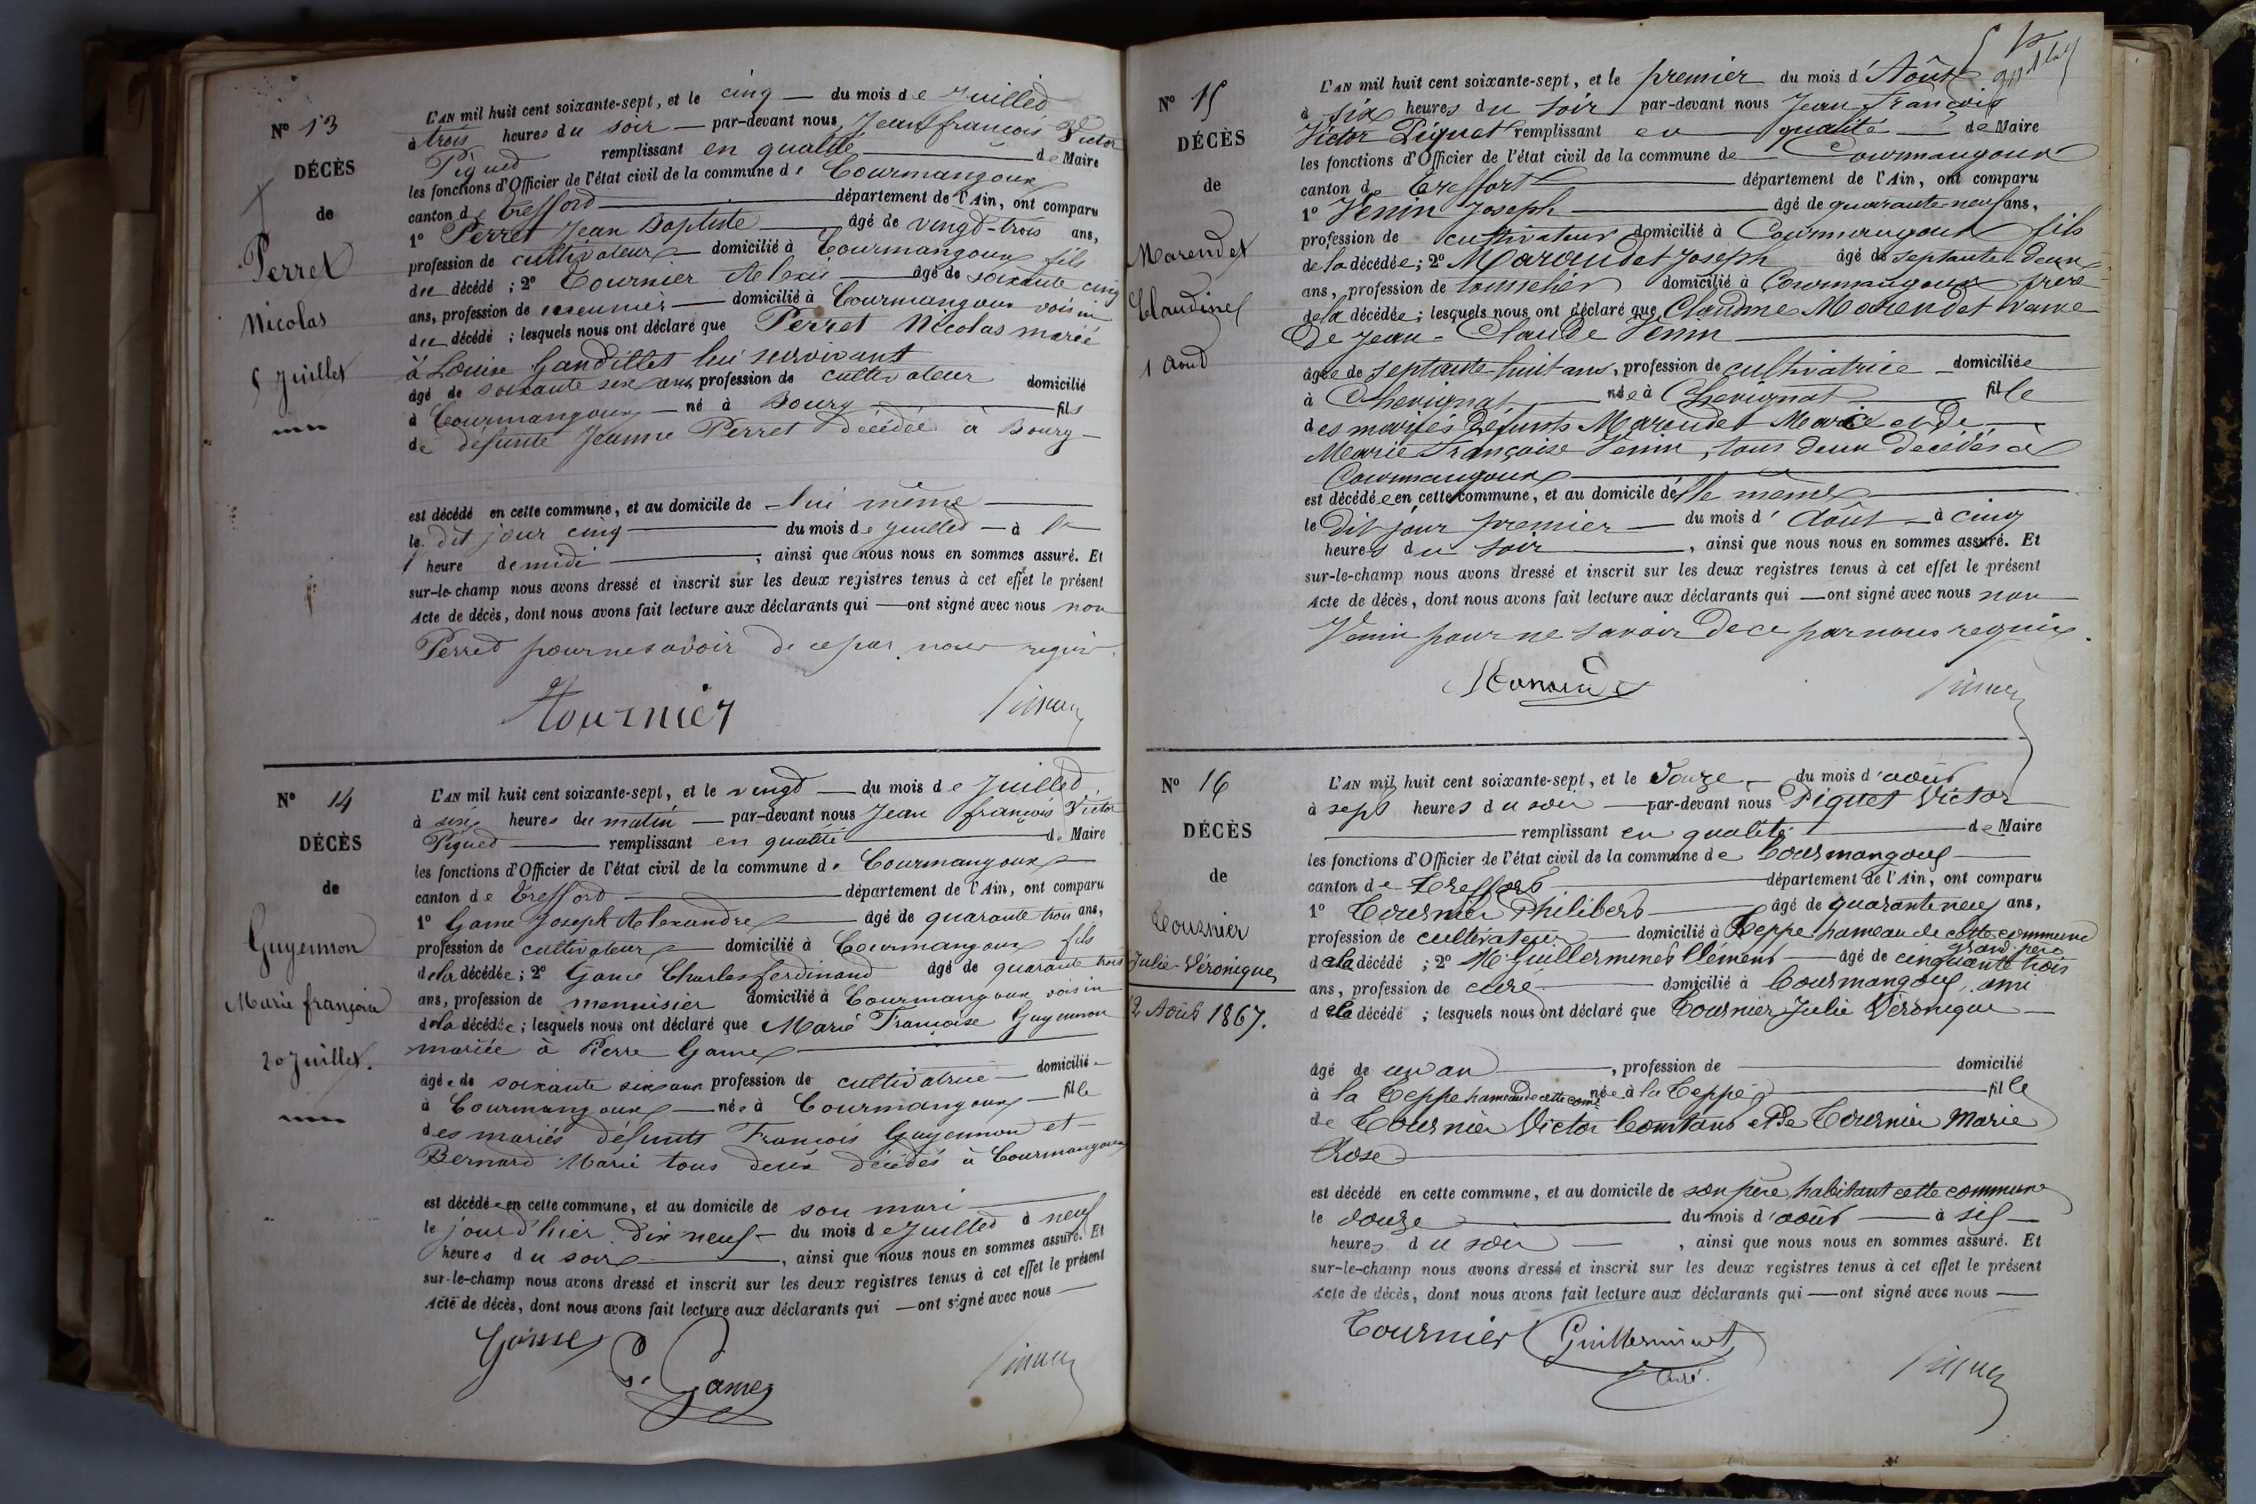 N° 13
DÉCÈS
de
Perret
Nicolas
5 Juillet
L'AN mil huit cent soixante-sept, et le cinq — du mois de Juilled
à trois heures du soir — par-devant nous Jean françois Victor
Piqued remplissant en qualité — de Maire
les fonctions d'Officier de l'état civil de la commune de Courmangoux
canton de Trefford — département de l'Ain, ont comparu
1° Perret Jean Baptiste — âgé de vingd-trois ans,
profession de cultivateur — domicilié à Courmangoux fils
du décédé ; 2° Tournier Alexis — âgé de soixante cinq
ans, profession de meunier — domicilié à Courmangoux voisin
du décédé ; lesquels nous ont déclaré que Perret Nicolas marié
à Louise Gandillet lui survivant
âgé de soixante six ans profession de cultivateur domicilié
à Courmangoux — né à Bourg — fils
de défunte Jeanne Perret décédée à Bourg —
est décédé en cette commune, et au domicile de lui même —
le dit jour cinq — du mois de juilled — à
heure demidi — , ainsi que nous nous en sommes assuré. Et
sur-le-champ nous avons dressé et inscrit sur les deux registres tenus à cet effet le présent
Acte de décès, dont nous avons fait lecture aux déclarants qui — ont signé avec nous non
Perred pour ne savoir de ce par nous requis.
Tournier
N° 14
DÉCÈS
de
Guyennon
Marie françoise
20 Juillet.
L'AN mil huit cent soixante-sept, et le vingd — du mois de Juilled
à six heures du matin — par-devant nous Jean françois Victor
Piqued — remplissant en qualité — de Maire
les fonctions d'Officier de l'état civil de la commune de Courmangoux
canton de Trefford — département de l'Ain, ont comparu
1° Game Joseph Alexandre — âgé de quarante trois ans,
profession de cultivateur — domicilié à Courmangoux fils
de la décédée ; 2° Game Charles ferdinand âgé de quarante trois
ans, profession de menuisier domicilié à Courmangoux voisin
de la décédée ; lesquels nous ont déclaré que Marie Francoise Guyennon
mariée à Pierre Game —
âgée de soixante six ans profession de cultivatrice — domiciliée
à Courmangoux — née à Courmangoux — fille
des mariés défunts Francois Guyennon et —
Bernard Marie tous deux décédés à Courmangoux
est décédée en cette commune, et au domicile de son mari —
le jour d'hier dix neuf — du mois de Juilled à neuf
heures du soir — , ainsi que nous nous en sommes assuré. Et
sur-le-champ nous avons dressé et inscrit sur les deux registres tenus à cet effet le présent
Acte de décès, dont nous avons fait lecture aux déclarants qui — ont signé avec nous —
Game
Game
N° 15
DÉCÈS
de
Marendet
Claudine
1 Aoud
L'AN mil huit cent soixante-sept, et le premier du mois d'Aôut
à six heures du soir par-devant nous Jean françois
Victor Piquet remplissant en — qualité — de Maire
les fonctions d'Officier de l'état civil de la commune de — Courmangoux
canton de Treffort — département de l'Ain, ont comparu
1° Venin Joseph — âgé de quarante-neuf ans,
profession de cultivateur domicilié à Courmangoux fils
de la décédée ; 2° Marandet Joseph âgé de septante-deux
ans, profession de domicilié à Courmangoux frère
de la décédée ; lesquels nous ont déclaré que Claudine Marendet veuve
de Jean-Claude Venin —
âgée de septante-huit ans, profession de cultivatrice — domiciliée
à Chevignat — née à Chevignat — fille
des mariés défunts Marendet Marie et de —
Marie Françoise Venin, tous deux decédés à
Courmangoux —
est décédée en cette commune, et au domicile d'elle même —
le dit jour premier — du mois d'Aôut — à cinq
heures du soir — , ainsi que nous nous en sommes assuré. Et
sur-le-champ nous avons dressé et inscrit sur les deux registres tenus à cet effet le présent
Acte de décès, dont nous avons fait lecture aux déclarants qui — ont signé avec nous non
Venin pour ne savoir de ce par nous requis.
N° 16
DÉCÈS
de
Tournier
Julie-Véronique
12 Août 1867.
L'AN mil huit cent soixante-sept, et le douze — du mois d'août
à sept heures du soir — par-devant nous Piquet Victor
— remplissant en qualité — de Maire
les fonctions d'Officier de l'état civil de la commune de Courmangoux —
canton de Treffort — département de l'Ain, ont comparu
1° Tournier Philibert — âgé de quarante neuf ans,
profession de cultivateur — domicilié à Teppe hameau de cette commune
grand-père
de la décédé ; 2° Mr Guillerminet Clément — âgé de cinquante trois
ans, profession de curé — domicilié à Courmangoux, ami
de la décédé ; lesquels nous ont déclaré que Tournier Julie Véronique —
âgé de un an — , profession de — domicilié
à la Teppe hameau de cette comne née à la Teppe — fille
de Tournier Victor Constant et de Tournier Marie
Rose —
est décédé en cette commune, et au domicile de son père habitant cette commune
le douze — du mois d'août — à six —
heures du soir — , ainsi que nous nous en sommes assuré. Et
sur-le-champ nous avons dressé et inscrit sur les deux registres tenus à cet effet le présent
Acte de décès, dont nous avons fait lecture aux déclarants qui — ont signé avec nous —
Tournier Guillerminet
Curé.